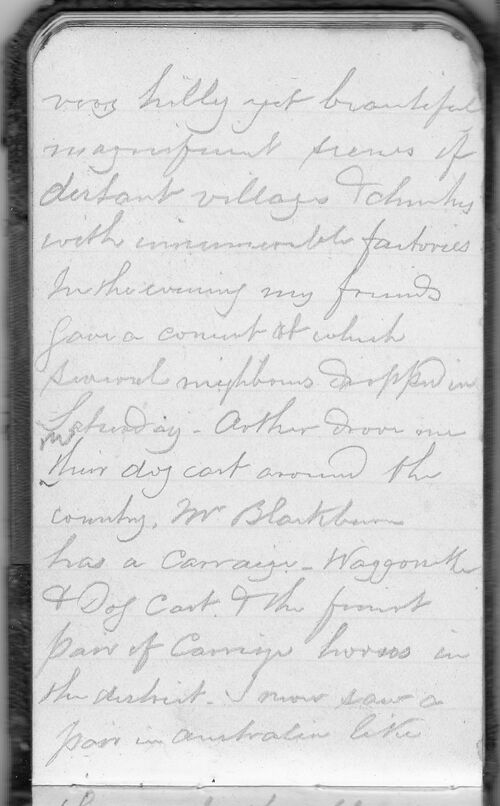 very hilly yet beautiful
magnificent scenes of
distant villages & churches
with innumerable factories
In the evening my friends
gave a concert at which
several neighbours dropped in
Saturday - Arther drove me
in their dog cart around the
country. Mr Blackburn
has a Carraige - Waggonette
& Dog Cart & the finest
pair of Carriage horses in
the district - I never saw a
pair in Australia like